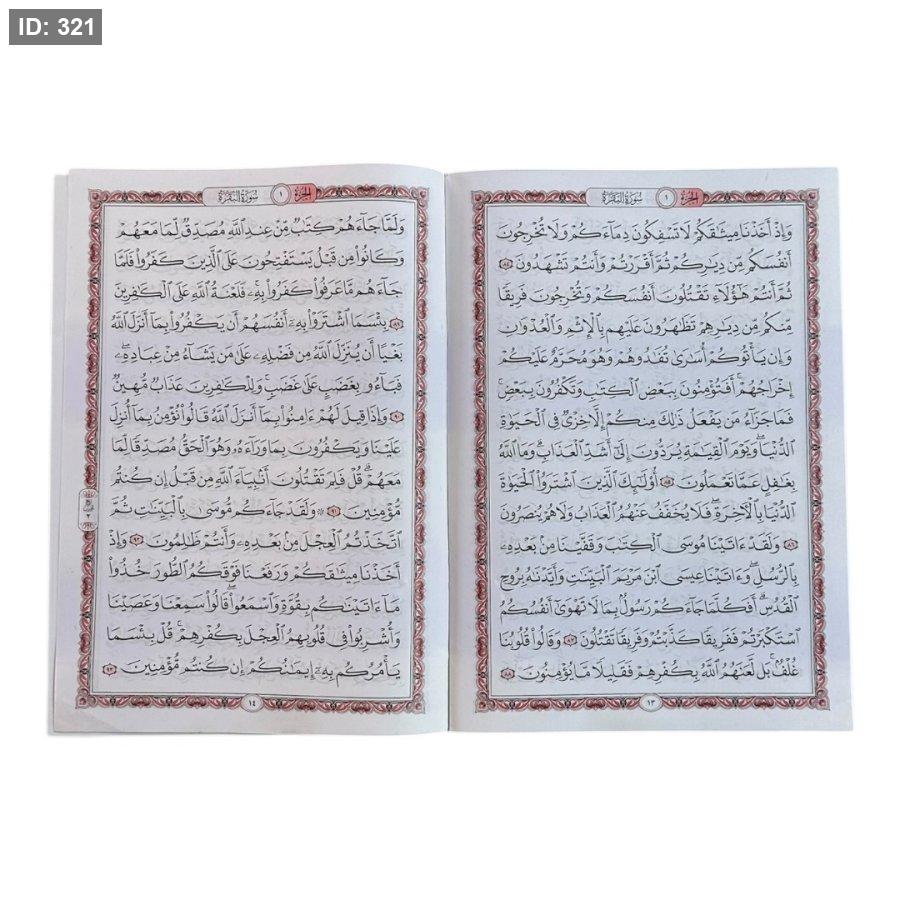 ID: 321
الجزء ١ سورة البقرة
وَإِذْ أَخَذْنَا مِيثَٰقَكُمْ لَا تَسْفِكُونَ دِمَآءَكُمْ وَلَا تُخْرِجُونَ
أَنفُسَكُم مِّن دِيَٰرِكُمْ ثُمَّ أَقْرَرْتُمْ وَأَنتُمْ تَشْهَدُونَ ٨٤
ثُمَّ أَنتُمْ هَٰٓؤُلَآءِ تَقْتُلُونَ أَنفُسَكُمْ وَتُخْرِجُونَ فَرِيقًا
مِّنكُم مِّن دِيَٰرِهِمْ تَظَٰهَرُونَ عَلَيْهِم بِٱلْإِثْمِ وَٱلْعُدْوَٰنِ
وَإِن يَأْتُوكُمْ أُسَٰرَىٰ تُفَٰدُوهُمْ وَهُوَ مُحَرَّمٌ عَلَيْكُمْ
إِخْرَاجُهُمْ ۚ أَفَتُؤْمِنُونَ بِبَعْضِ ٱلْكِتَٰبِ وَتَكْفُرُونَ بِبَعْضٍ ۚ
فَمَا جَزَآءُ مَن يَفْعَلُ ذَٰلِكَ مِنكُمْ إِلَّا خِزْىٌ فِى ٱلْحَيَوٰةِ
ٱلدُّنْيَا ۖ وَيَوْمَ ٱلْقِيَٰمَةِ يُرَدُّونَ إِلَىٰٓ أَشَدِّ ٱلْعَذَابِ ۗ وَمَا ٱللَّهُ
بِغَٰفِلٍ عَمَّا تَعْمَلُونَ ٨٥ أُو۟لَٰٓئِكَ ٱلَّذِينَ ٱشْتَرَوُا۟ ٱلْحَيَوٰةَ
ٱلدُّنْيَا بِٱلْءَاخِرَةِ ۖ فَلَا يُخَفَّفُ عَنْهُمُ ٱلْعَذَابُ وَلَا هُمْ يُنصَرُونَ
٨٦ وَلَقَدْ ءَاتَيْنَا مُوسَى ٱلْكِتَٰبَ وَقَفَّيْنَا مِنۢ بَعْدِهِۦ
بِٱلرُّسُلِ ۖ وَءَاتَيْنَا عِيسَى ٱبْنَ مَرْيَمَ ٱلْبَيِّنَٰتِ وَأَيَّدْنَٰهُ بِرُوحِ
ٱلْقُدُسِ ۗ أَفَكُلَّمَا جَآءَكُمْ رَسُولٌۢ بِمَا لَا تَهْوَىٰٓ أَنفُسُكُمُ
ٱسْتَكْبَرْتُمْ فَفَرِيقًا كَذَّبْتُمْ وَفَرِيقًا تَقْتُلُونَ ٨٧ وَقَالُوا۟ قُلُوبُنَا
غُلْفٌۢ ۚ بَل لَّعَنَهُمُ ٱللَّهُ بِكُفْرِهِمْ فَقَلِيلًا مَّا يُؤْمِنُونَ ٨٨
١٣
الجزء ١ سورة البقرة
وَلَمَّا جَآءَهُمْ كِتَٰبٌ مِّنْ عِندِ ٱللَّهِ مُصَدِّقٌ لِّمَا مَعَهُمْ
وَكَانُوا۟ مِن قَبْلُ يَسْتَفْتِحُونَ عَلَى ٱلَّذِينَ كَفَرُوا۟ فَلَمَّا
جَآءَهُم مَّا عَرَفُوا۟ كَفَرُوا۟ بِهِۦ ۚ فَلَعْنَةُ ٱللَّهِ عَلَى ٱلْكَٰفِرِينَ
٨٩ بِئْسَمَا ٱشْتَرَوْا۟ بِهِۦٓ أَنفُسَهُمْ أَن يَكْفُرُوا۟ بِمَآ أَنزَلَ ٱللَّهُ
بَغْيًا أَن يُنَزِّلَ ٱللَّهُ مِن فَضْلِهِۦ عَلَىٰ مَن يَشَآءُ مِنْ عِبَادِهِۦ ۖ
فَبَآءُو بِغَضَبٍ عَلَىٰ غَضَبٍ ۚ وَلِلْكَٰفِرِينَ عَذَابٌ مُّهِينٌ
٩٠ وَإِذَا قِيلَ لَهُمْ ءَامِنُوا۟ بِمَآ أَنزَلَ ٱللَّهُ قَالُوا۟ نُؤْمِنُ بِمَآ أُنزِلَ
عَلَيْنَا وَيَكْفُرُونَ بِمَا وَرَآءَهُۥ وَهُوَ ٱلْحَقُّ مُصَدِّقًا لِّمَا
مَعَهُمْ ۗ قُلْ فَلِمَ تَقْتُلُونَ أَنۢبِيَآءَ ٱللَّهِ مِن قَبْلُ إِن كُنتُم
مُّؤْمِنِينَ ٩١ ۞ وَلَقَدْ جَآءَكُم مُّوسَىٰ بِٱلْبَيِّنَٰتِ ثُمَّ
ٱتَّخَذْتُمُ ٱلْعِجْلَ مِنۢ بَعْدِهِۦ وَأَنتُمْ ظَٰلِمُونَ ٩٢ وَإِذْ
أَخَذْنَا مِيثَٰقَكُمْ وَرَفَعْنَا فَوْقَكُمُ ٱلطُّورَ خُذُوا۟
مَآ ءَاتَيْنَٰكُم بِقُوَّةٍ وَٱسْمَعُوا۟ ۖ قَالُوا۟ سَمِعْنَا وَعَصَيْنَا
وَأُشْرِبُوا۟ فِى قُلُوبِهِمُ ٱلْعِجْلَ بِكُفْرِهِمْ ۚ قُلْ بِئْسَمَا
يَأْمُرُكُم بِهِۦٓ إِيمَٰنُكُمْ إِن كُنتُم مُّؤْمِنِينَ ٩٣
١٤